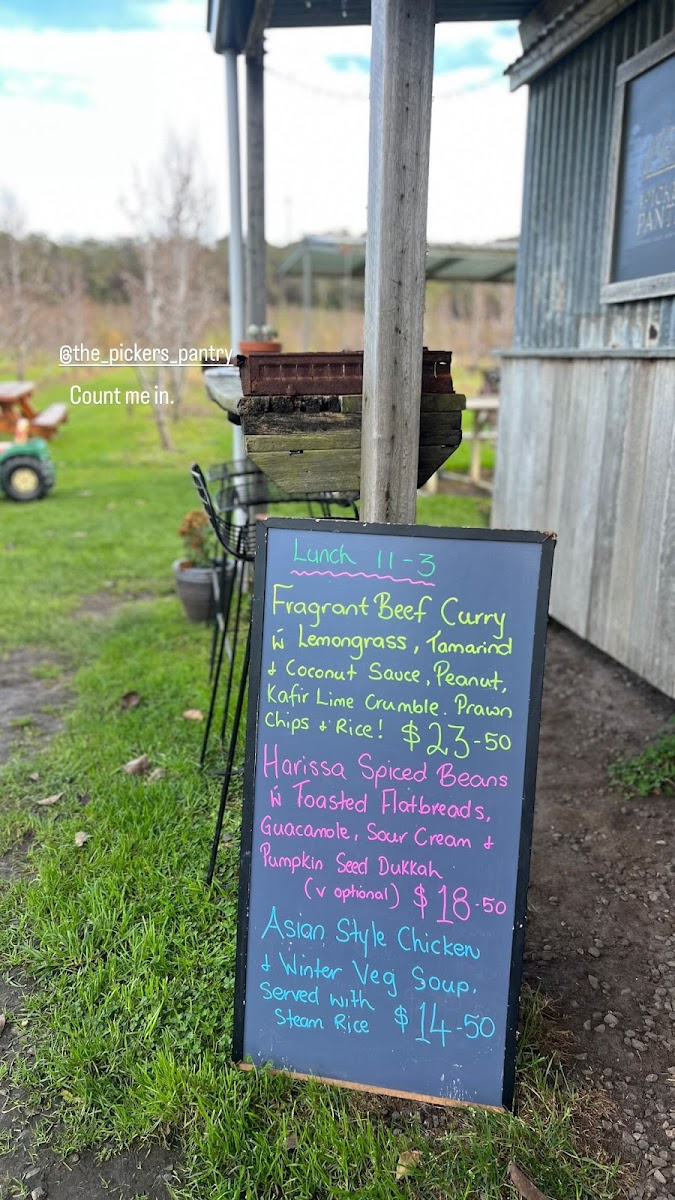 @the_pickers_pantry
Count me in.
PANT
Lunch 11-3
Fragrant Beef Curry
w Lemongrass, Tamarind
& Coconut Sauce, Peanut,
Kafir Lime Crumble. Prawn
Chips & Rice! $23-50
Harissa Spiced Beans
w Toasted Flatbreads,
Guacamole, Sour Cream &
Pumpkin Seed Dukkah
(v optional) $18-50
Asian Style Chicken
& Winter Veg Soup.
Served with
Steam Rice $14-50